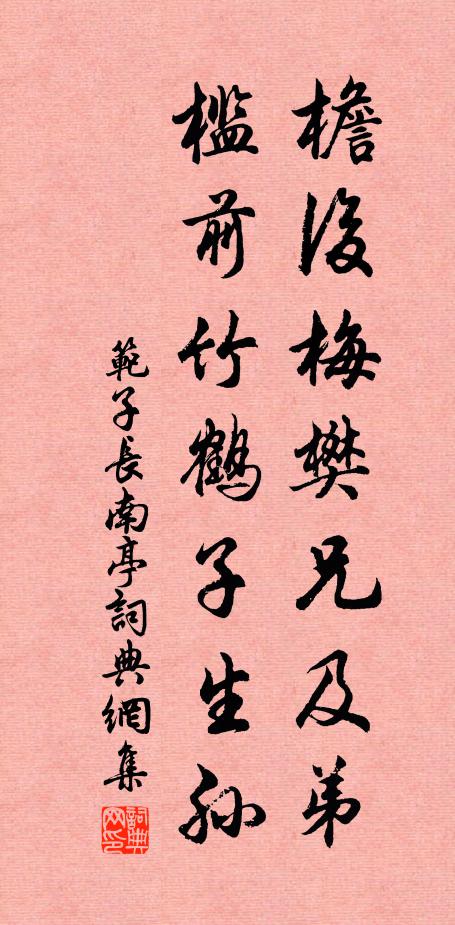 檐後梅樊兄及弟
槛前竹鶴子生孫
範子長南亭詞典網集
詞典网印